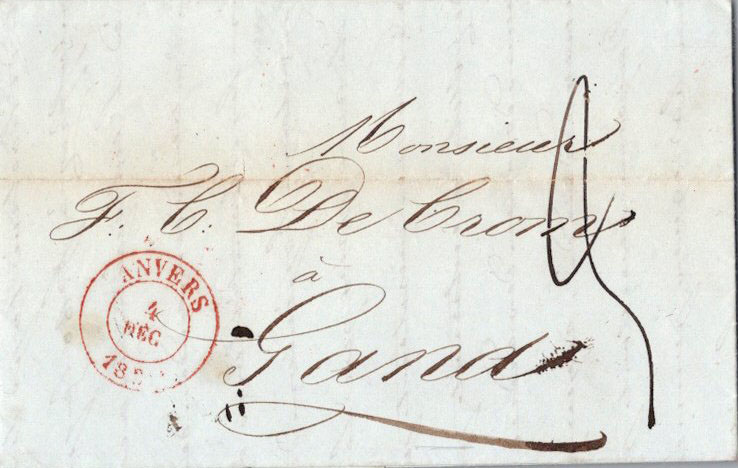 Monsieur
F. C. De Crom
à
Gand
ANVERS
4
DEC